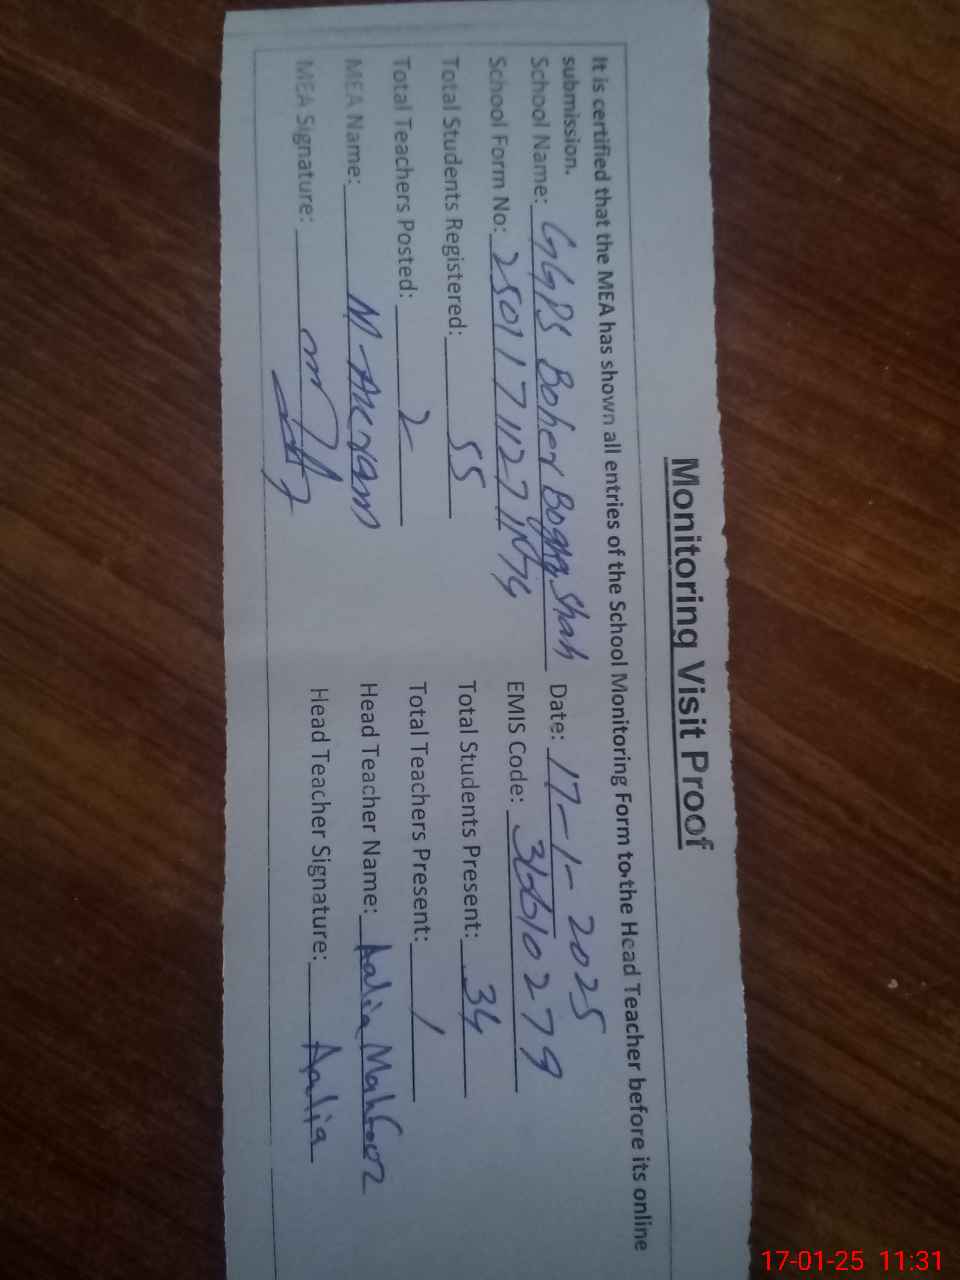 Monitoring Visit Proof
It is certified that the MEA has shown all entries of the School Monitoring Form to the Head Teacher before its online
submission.
School Name: GGPS Boher Shah Date: 17-1-2025
School Form No: EMIS Code:
Total Students Registered: 55 Total Students Present: 34
Total Teachers Posted: 2 Total Teachers Present: 1
MEA Name: M. Akram Head Teacher Name: Aalia Mahfooz
MEA Signature: Head Teacher Signature: Aalia
17-01-25 11:31